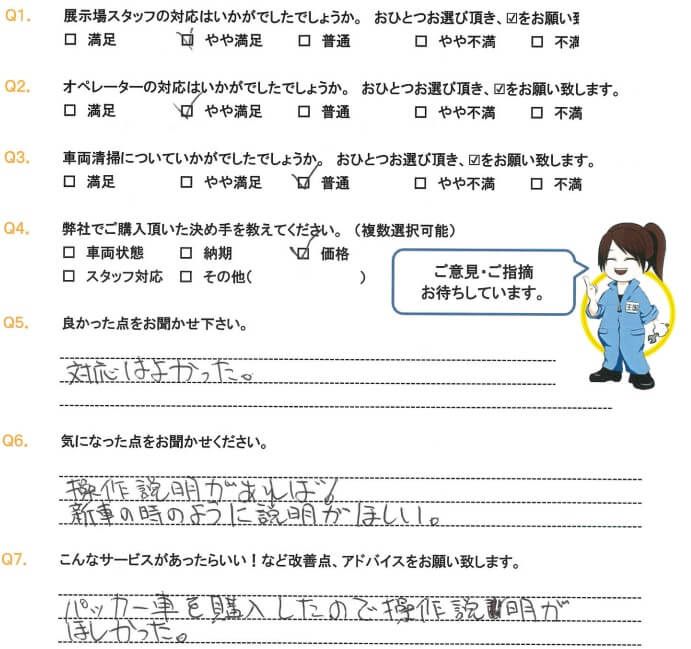 Q1. 展示場スタッフの対応はいかがでしたでしょうか。 おひとつお選び頂き、☑をお願い
□ 満足 ☑ やや満足 □ 普通 □ やや不満 □ 不満
Q2. オペレーターの対応はいかがでしたでしょうか。 おひとつお選び頂き、☑をお願い致します。
□ 満足 ☑ やや満足 □ 普通 □ やや不満 □ 不満
Q3. 車両清掃についていかがでしたでしょうか。 おひとつお選び頂き、☑をお願い致します。
□ 満足 □ やや満足 ☑ 普通 □ やや不満 □ 不満
Q4. 弊社でご購入頂いた決め手を教えてください。(複数選択可能)
□ 車両状態 □ 納期 ☑ 価格
□ スタッフ対応 □ その他( )
ご意見・ご指摘
お待ちしています。
Q5. 良かった点をお聞かせ下さい。
対応はよかった。
Q6. 気になった点をお聞かせください。
操作説明があれば!
新車の時のように説明がほしい。
Q7. こんなサービスがあったらいい!など改善点、アドバイスをお願い致します。
パッカー車を購入したので操作説明が
ほしかった。